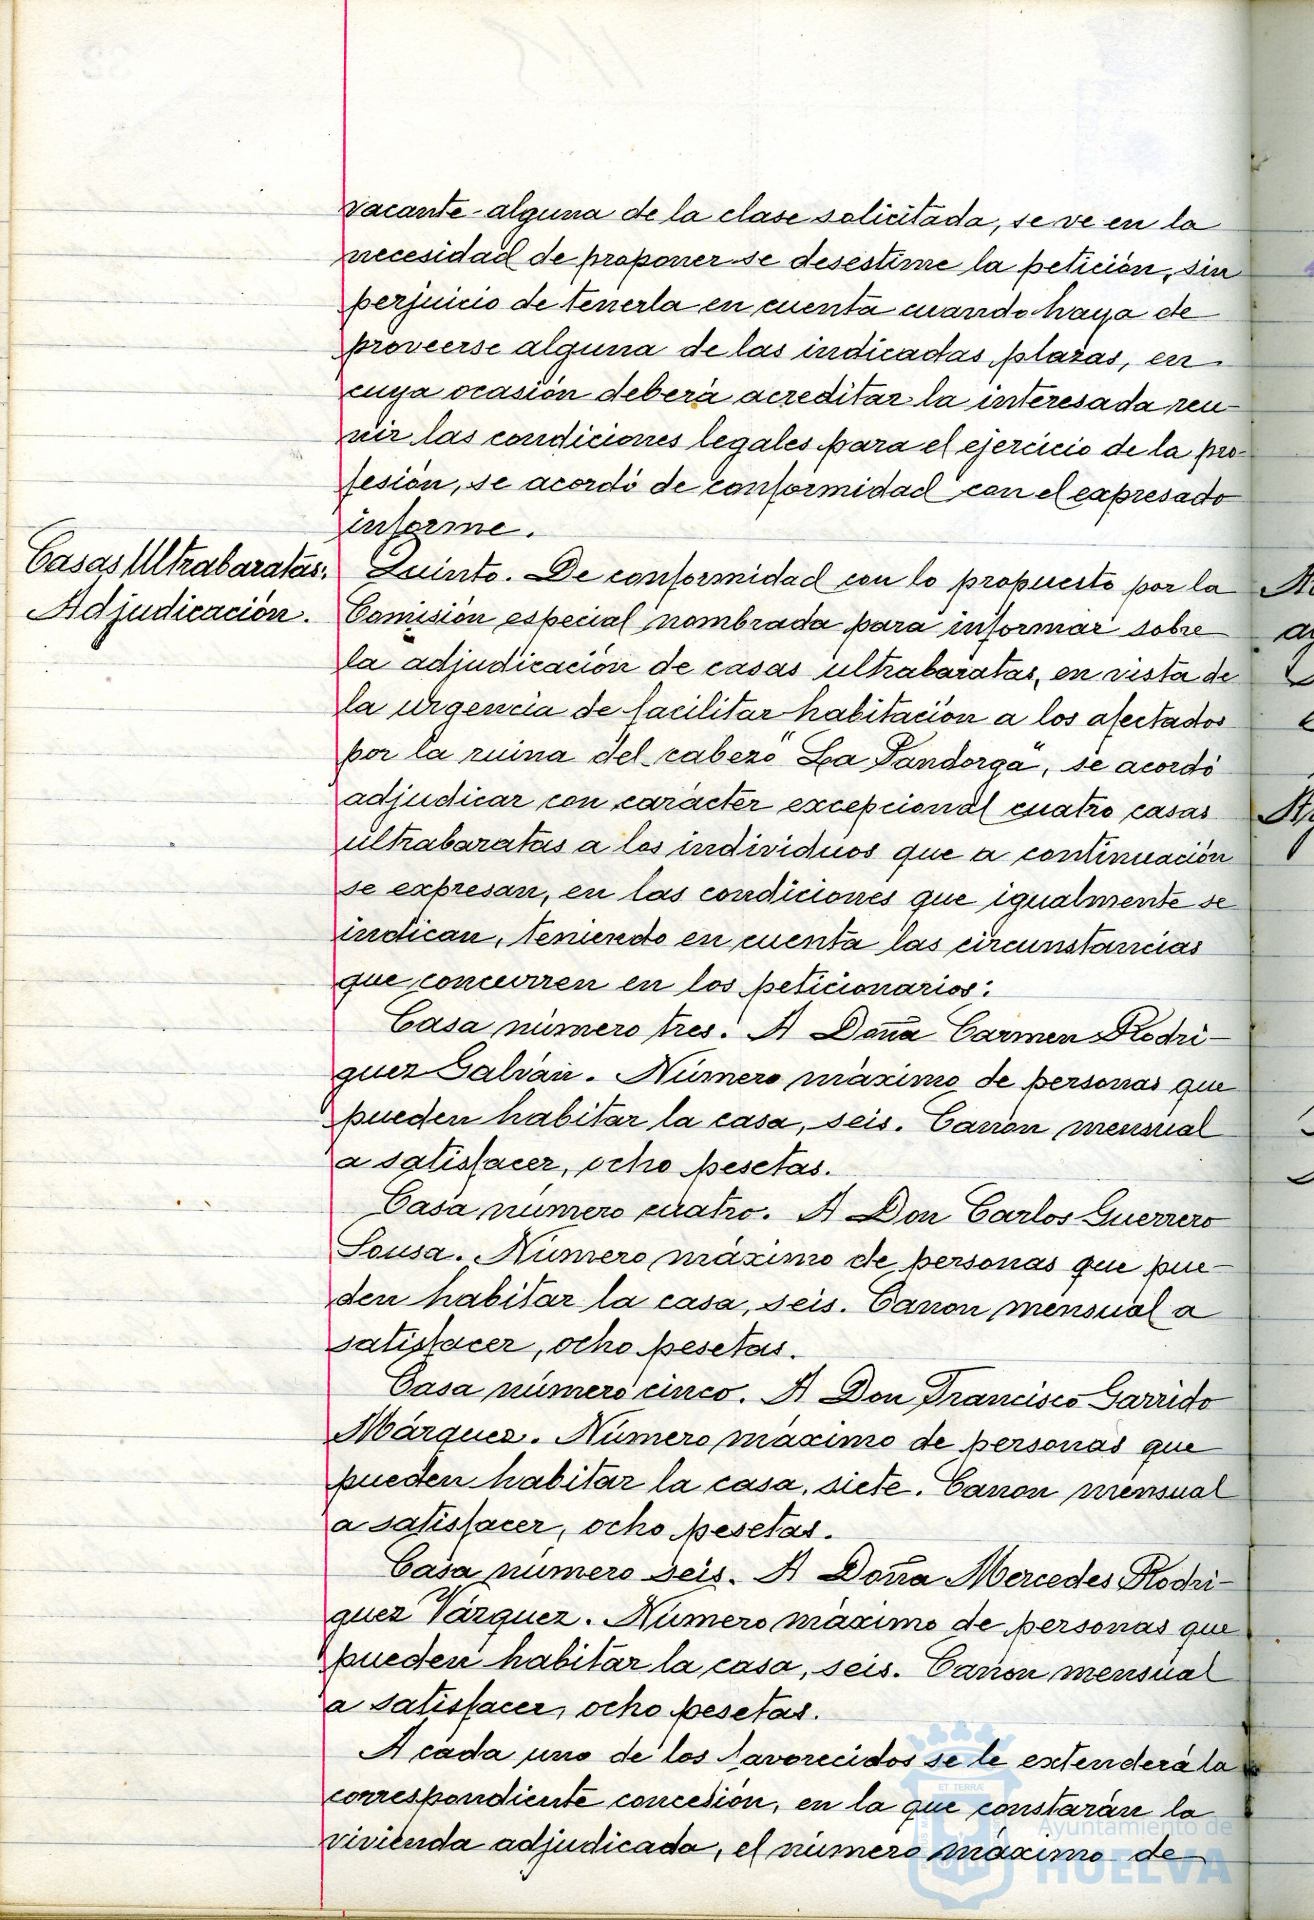 vacante alguna de la clase solicitada, se ve en la
necesidad de proponer se desestime la petición, sin
perjuicio de tenerla en cuenta cuando haya de
proveerse alguna de las indicadas plazas, en
cuya ocasión deberá acreditar la interesada reu-
nir las condiciones legales para el ejercicio de la pro-
fesión, se acordó de conformidad con el expresado
informe.
Casas Ultrabaratas.
Adjudicación.
Quinto. De conformidad con lo propuesto por la
Comisión especial nombrada para informar sobre
la adjudicación de casas ultrabaratas, en vista de
la urgencia de facilitar habitación a los afectados
por la ruina del cabezo "La Pandorga", se acordó
adjudicar con carácter excepcional cuatro casas
ultrabaratas a los individuos que a continuación
se expresan, en las condiciones que igualmente se
indican, teniendo en cuenta las circunstancias
que concurren en los peticionarios:
Casa número tres. A Doña Carmen Rodri-
guez Galván. Número máximo de personas que
pueden habitar la casa, seis. Canon mensual
a satisfacer, ocho pesetas.
Casa número cuatro. A Don Carlos Guerrero
Sousa. Número máximo de personas que pue-
den habitar la casa, seis. Canon mensual a
satisfacer, ocho pesetas.
Casa número cinco. A Don Francisco Garrido
Márquez. Número máximo de personas que
pueden habitar la casa, siete. Canon mensual
a satisfacer, ocho pesetas.
Casa número seis. A Doña Mercedes Rodri-
guez Vázquez. Número máximo de personas que
pueden habitar la casa, seis. Canon mensual
a satisfacer, ocho pesetas.
A cada uno de los favorecidos se le extenderá la
correspondiente concesión, en la que constarán la
vivienda adjudicada, el número máximo de
Ayuntamiento de
HUELVA